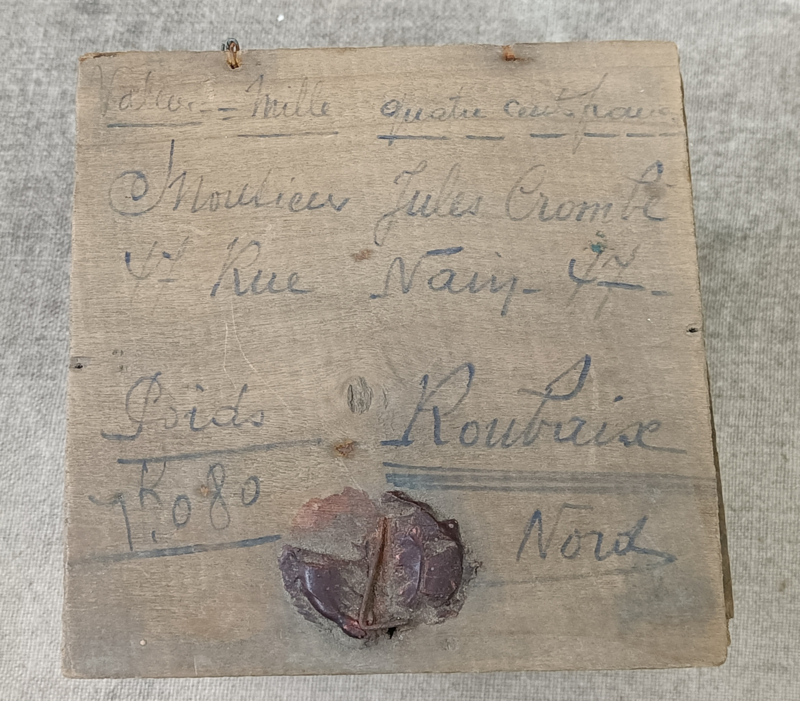 Valeur = Mille quatre cents francs
Monsieur Jules Crombé
47 Rue Nain - 47 -
Poids Roubaix
1K,080
Nord